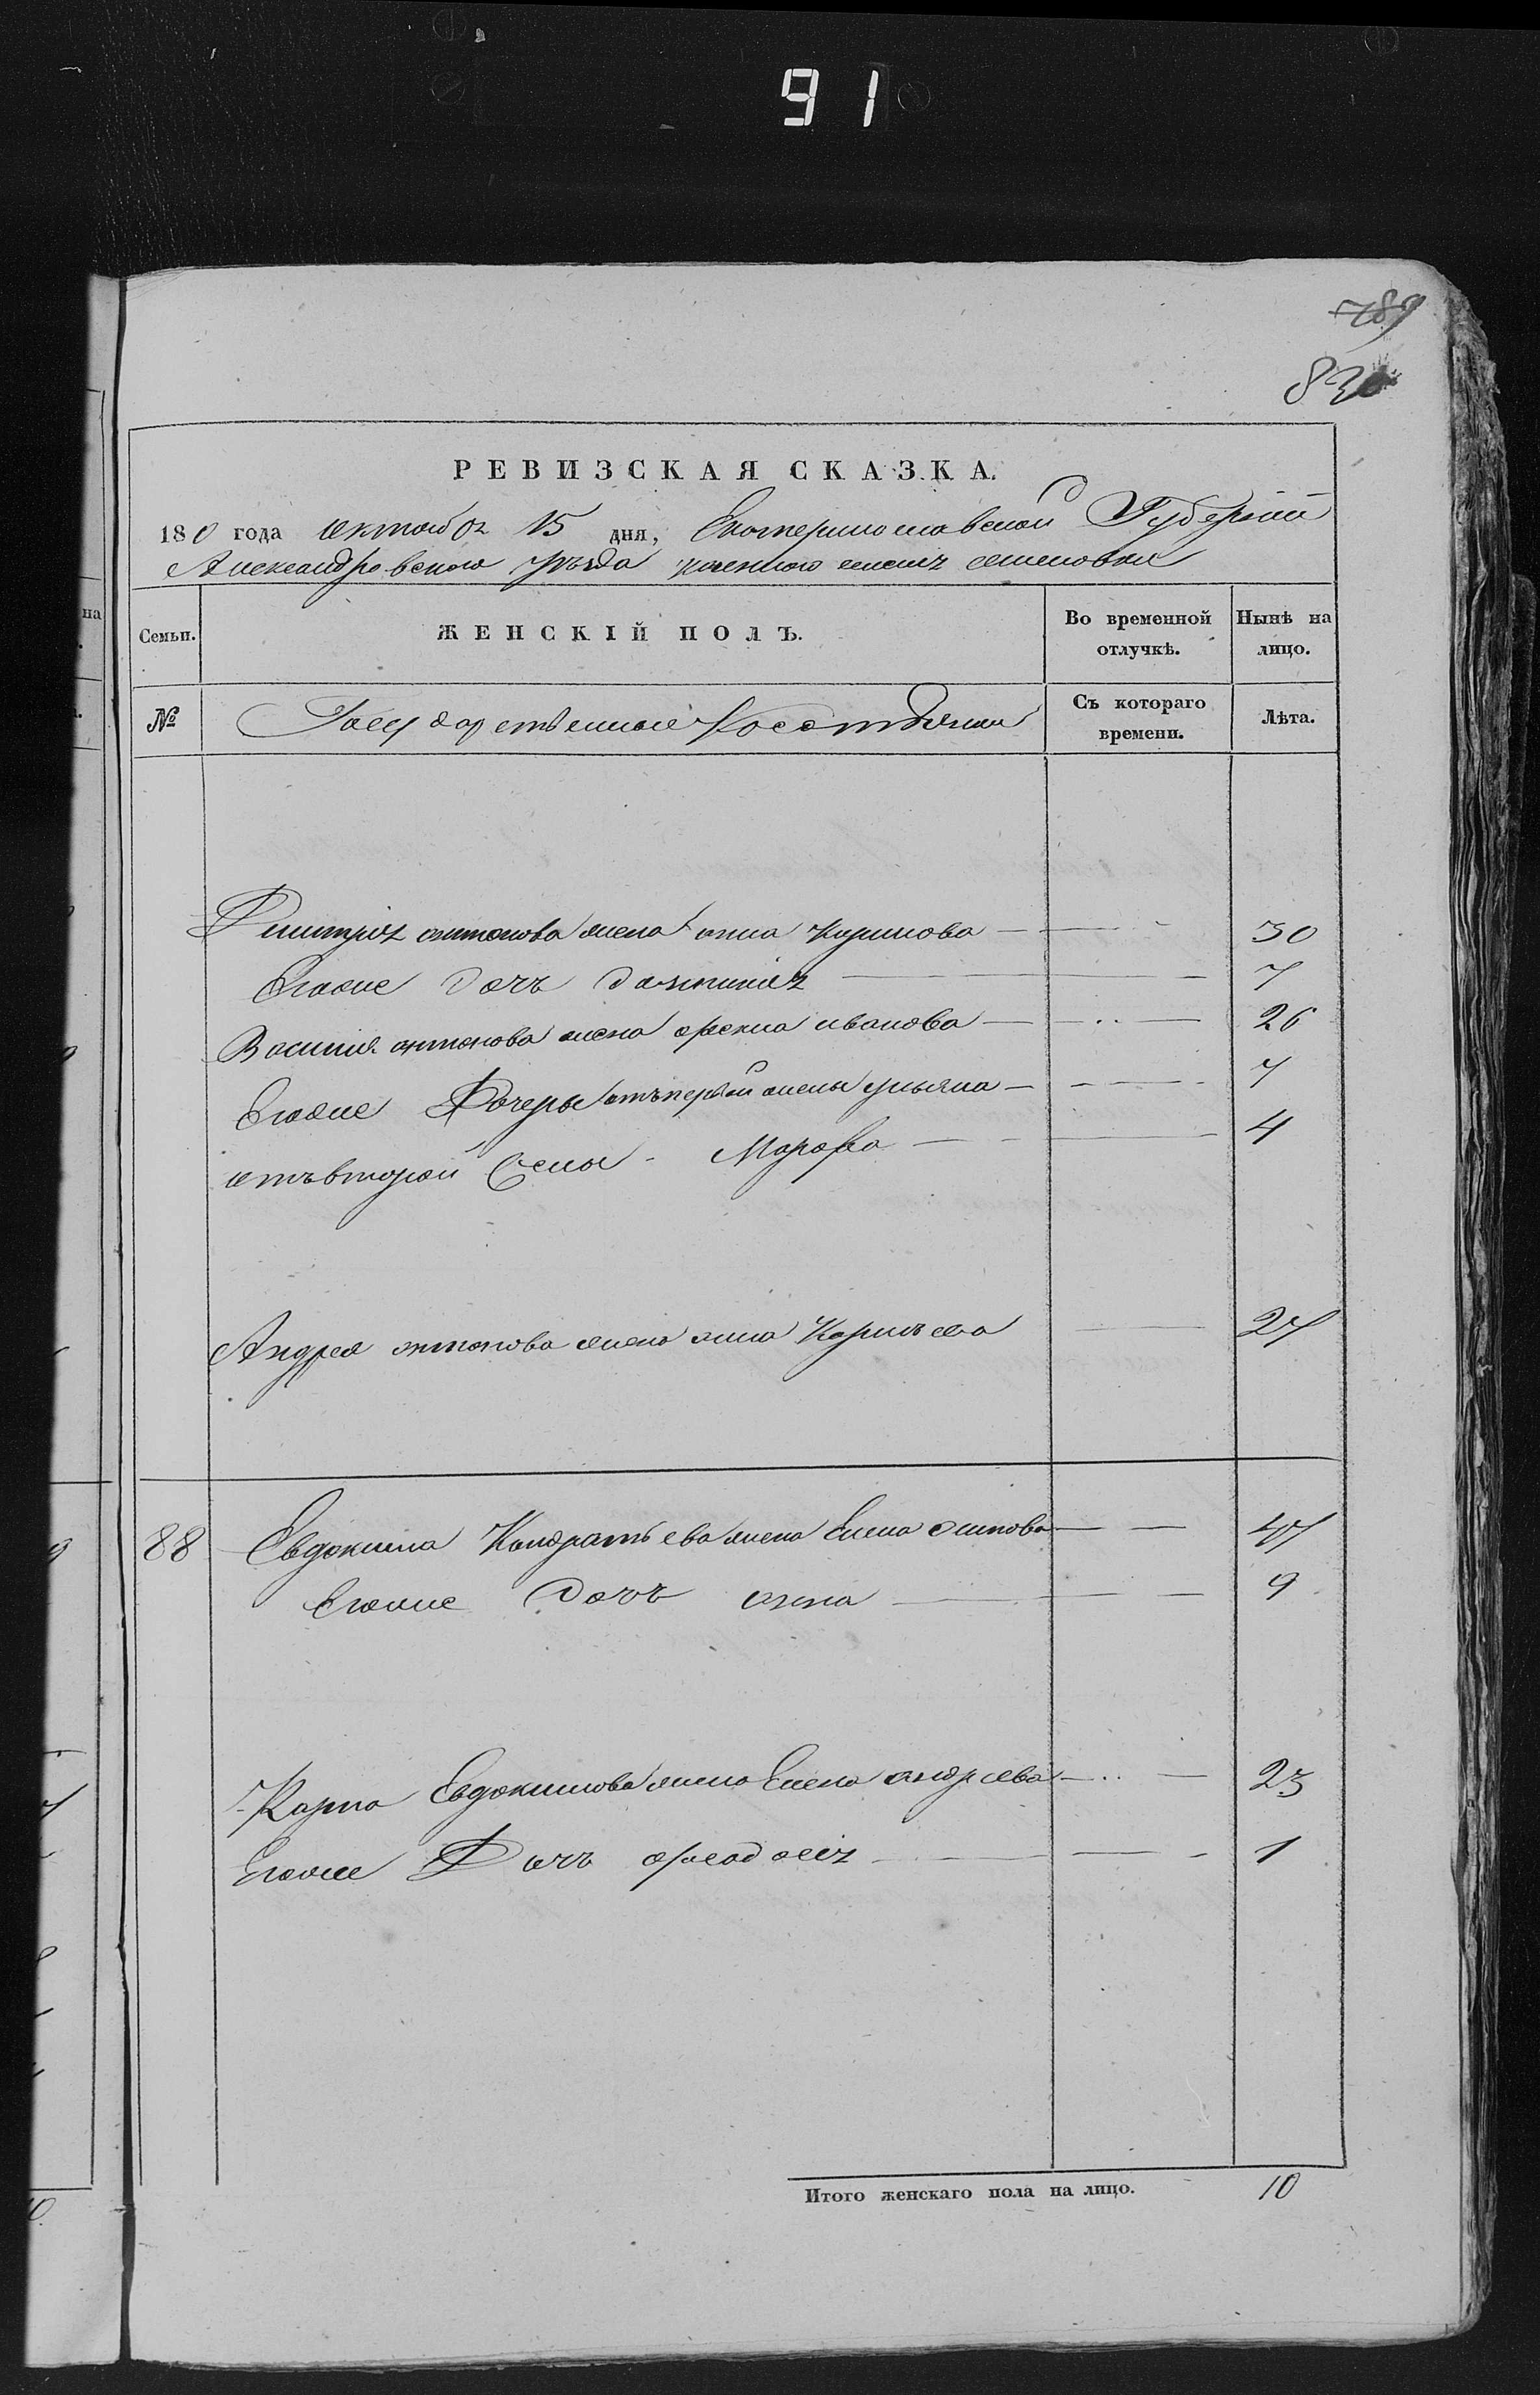 91
789
830
РЕВИЗСКАЯ СКАЗКА.
180 года октобря 15 дня, Екатеринославской Губернiи
Александровского уѣзда казенного селенiя семеновки
Семьи.
ЖЕНСКIЙ ПОЛЪ.
Во временной отлучкѣ.
Нынѣ на лицо.
№
Государственные
Съ котораго времени.
Лѣта.
Дмитрiя антонова жена анна 30
Егоже дочь 7
Василия антонова жена иванова 26
Егоже Дочеры отъ первой жены ульяна 7
отъ второй жены Марфа 4
Андрея антонова жена анна 27
88 Евдокима Кондратьева жена Елена осипова 47
Егоже дочь анна 9
Карпа Евдокимова жена Елена андреева 23
Егоже Дочь феодосiя 1
Итого женскаго пола на лицо. 10